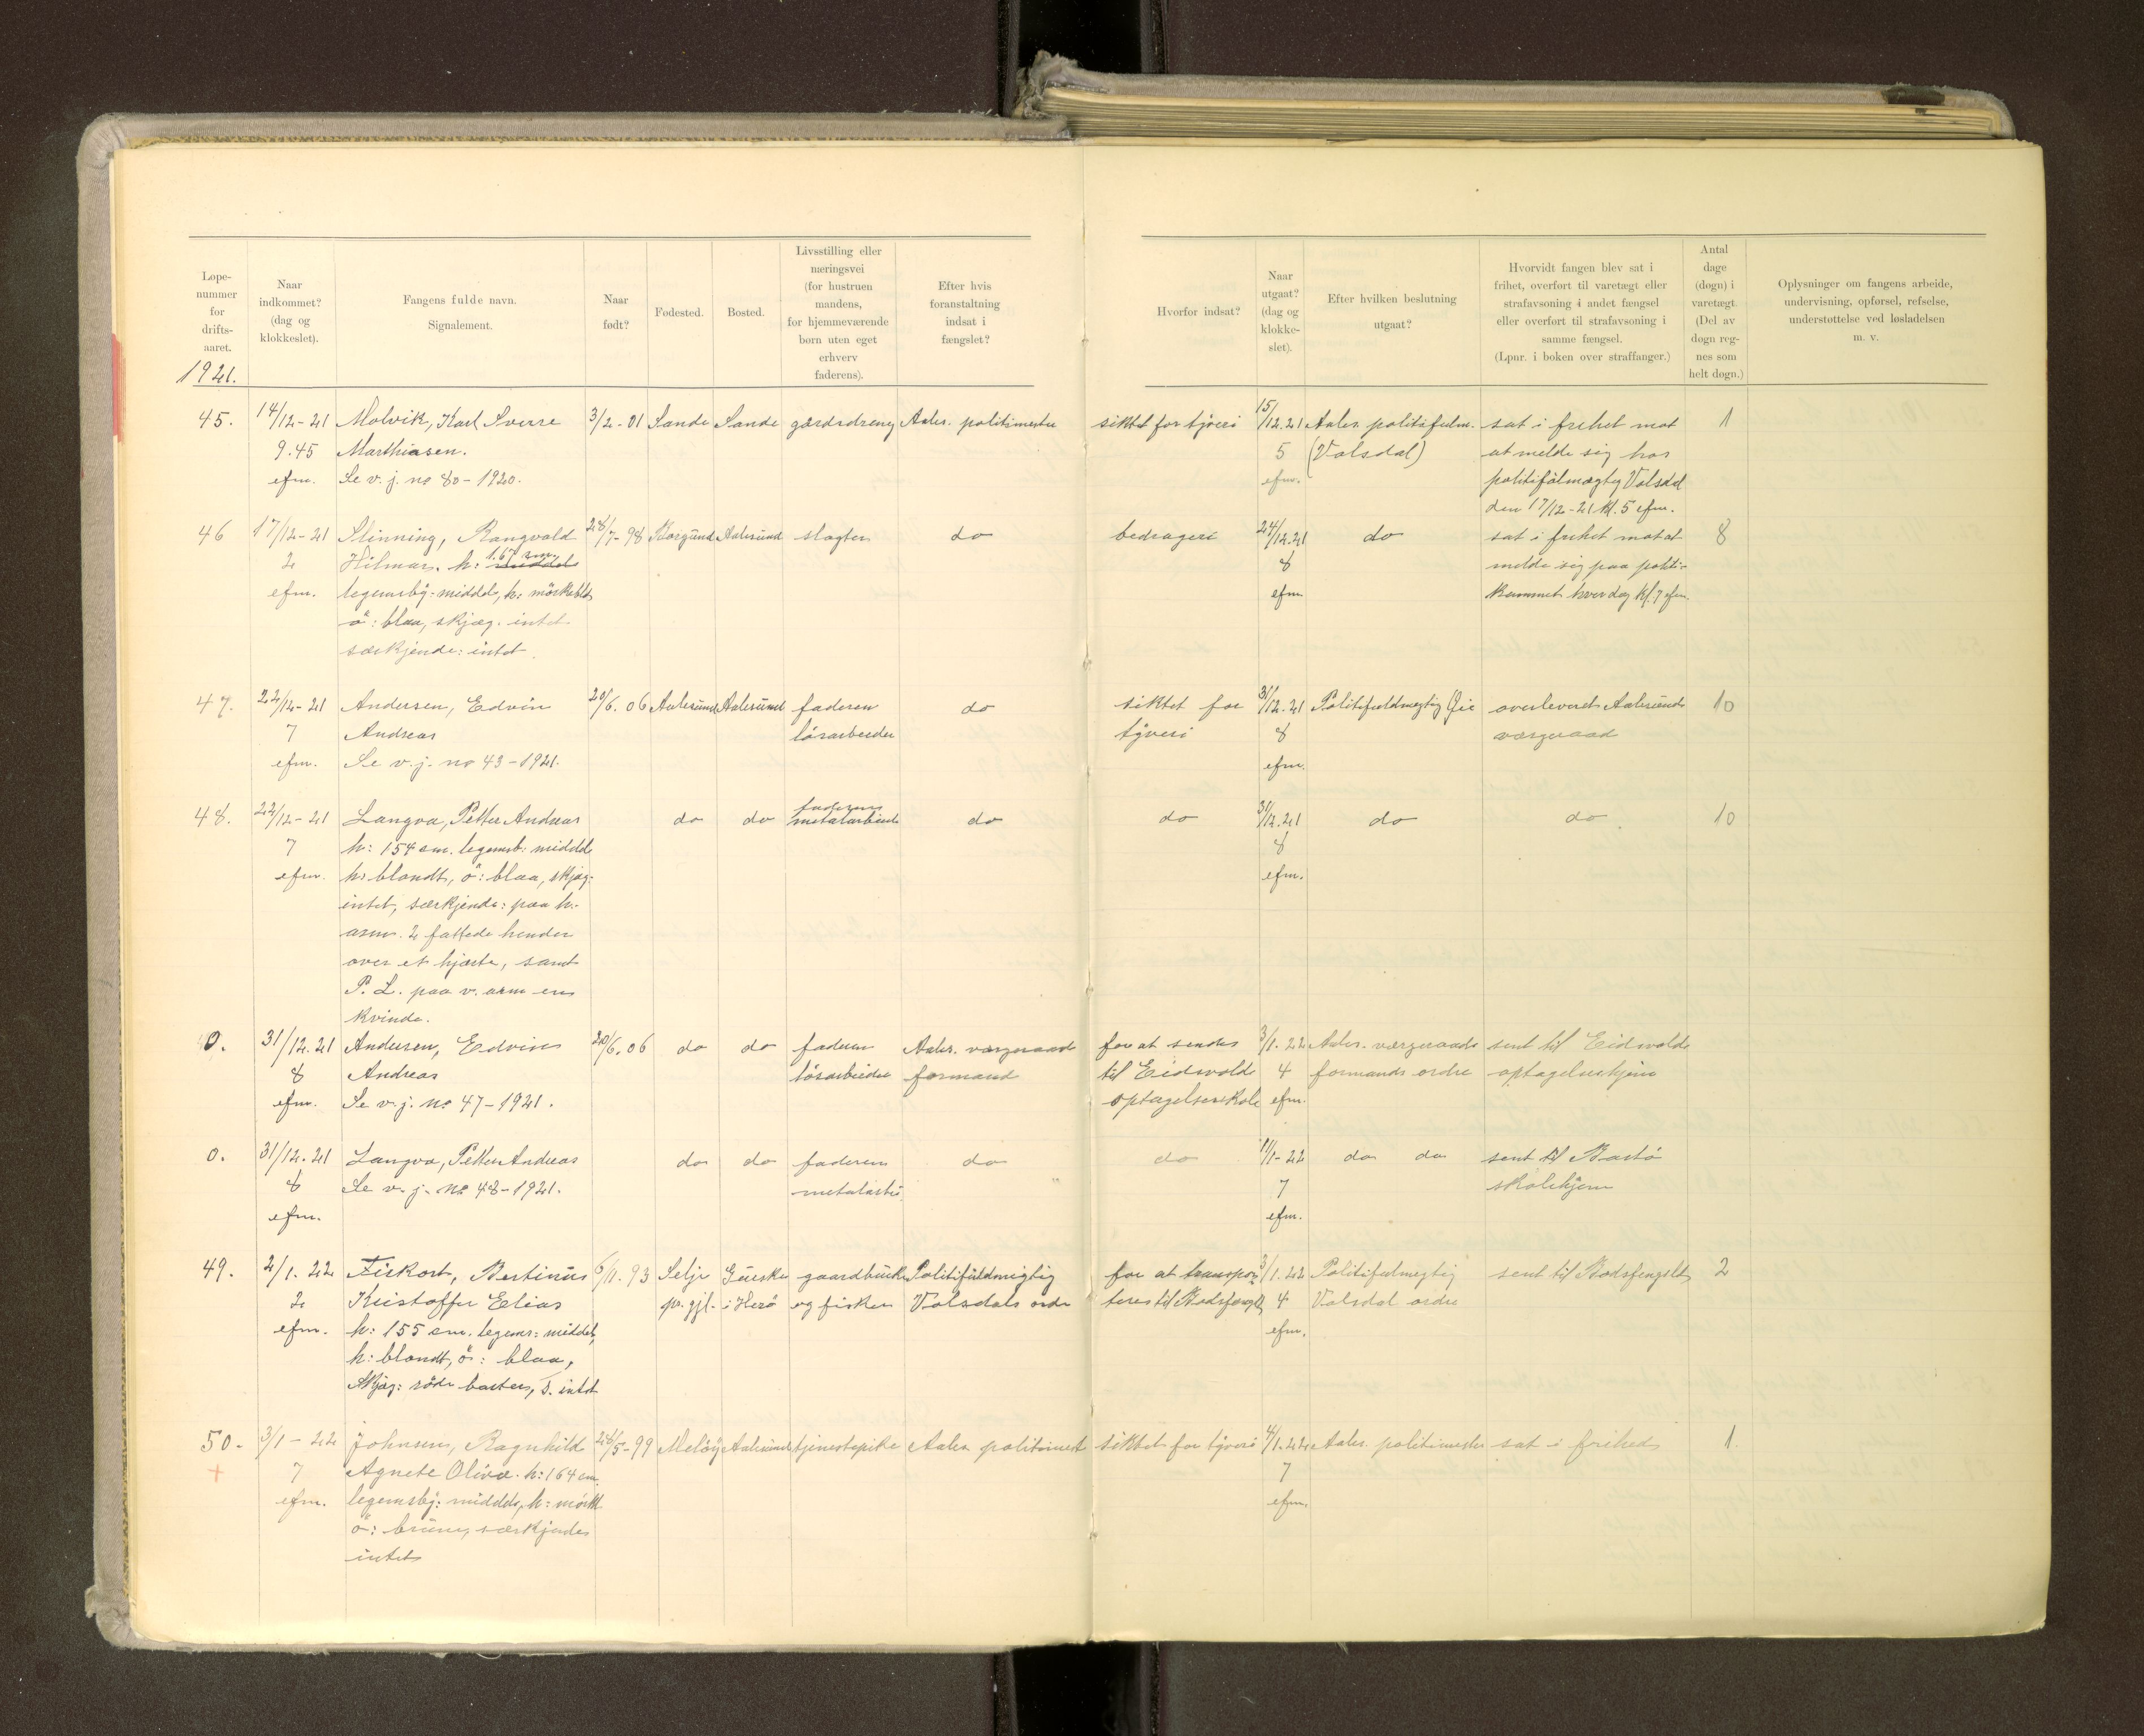 Løpe-
nummer
for
drifts-
aaret.
1921.
Naar
indkommet?
(dag og
klokkeslet).
Fangens fulde navn.
Signalement.
Naar
født?
Fødested.
Bosted.
Livsstilling eller
næringsvei
(for hustruen
mandens,
for hjemmeværende
børn uten eget
erhverv
faderens).
Efter hvis
foranstaltning
indsat i
fængslet?
Hvorfor indsat?
Naar
utgaat?
(dag og
klokke-
slet).
Efter hvilken beslutning
utgaat?
Hvorvidt fangen blev sat i
frihet, overført til varetægt eller
strafavsoning i andet fængsel
eller overført til strafavsoning i
samme fængsel.
(Lpnr. i boken over straffanger.)
Antal
dage
(døgn) i
varetægt.
(Del av
døgn reg-
nes som
helt døgn.)
Oplysninger om fangens arbeide,
undervisning, opførsel, refselse,
understøttelse ved løsladelsen
m. v.
45. 14/12-21 Molvik, Karl Sverre 3/2-01 Sande Sande gårdsdreng Aales. politimester siktet for tyveri 15/12.21 Aales. politifulm. sat i frihet mot 1
9.45 Marthiasen. 5 (Valsdal) at melde sig hos
efm. Se v. j. no 80-1920. efm. politifulmægtig Valsdal
den 17/12-21 kl. 5 efm.
46 17/12-21 Slinning, Rangvald 28/7-98 Borgund Aalesund slagter do bedrageri 24/12.21 do sat i frihet mot at 8
2 Hilmar. h: 1.67 cm. 8 melde sig paa politi-
efm. legemsby: middels, h: mörkeblt efm. kammret hver dag kl. 7 efm.
ö: blaa, skjæg: intet
særkjende: intet.
47. 22/12-21 Andersen, Edvin 20/6.06 Aalesund Aalesund faderen do siktet for 31/12.21 Politifuldmegtig Øie overleveret Aalesunds 10
7 Andreas lösarbeider tyveri 8 værgeraad
efm. Se v. j. no 43-1921. efm.
48. 22/12-21 Langva, Petter Andreas do do faderens metalarbeid do do 31/12.21 do do 10
7 h: 154 cm. legemsb: middels 8
efm. h: blondt, ö: blaa, skjæg: efm.
intet, særkjende: paa h.
arm. 2 fattede hender
over et hjærte, samt
P. L. paa v. arm en
kvinde.
0. 31/12.21 Andersen, Edvin 20/6.06 do do faderen Aales. værgeraads for at sendes 3/1.22 Aales. værgeraads sent til Eidsvolds
8 Andreas lösarbeider formand til Eidsvolds 4 formands ordre optagelseshjem
efm. Se v. j. no 47-1921. optagelsesskole efm.
0. 31/12.21 Langva, Petter Andreas do do faderen do do 11/1-22 do do sent til Bastö
8 Se v. j. no 48-1921. metalarbei. 7 skolehjem
efm. efm.
49. 2/1.22 Fiskort, Bertinus 6/11.93 Selje Gurska gaardbruker Politifuldmegtig for at transpor- 3/1.22 Politifulmegtig sent til Bodsfengslet 2
2 Kristoffer Elias pr. gjl. i Herö og fisker Valsdals ordre teres til Bodsfængslet 4 Valsdal ordre
efm. h: 155 cm. legems: middel, efm.
h: blondt, ö: blaa,
skjæg: röde barter, s. intet
50. 3/1-22 Johnsen, Ragnhild 28/5-99 Melöy Aalesund tjenestepike Aales. politimest siktet for tyveri 4/1.22 Aales. politimester sat i frihed 1.
+ 7 Agnete Oliva. h: 164 cm. 7
efm. legemsby: middels, h: mörkt efm.
ö: brune, særkjende
intet